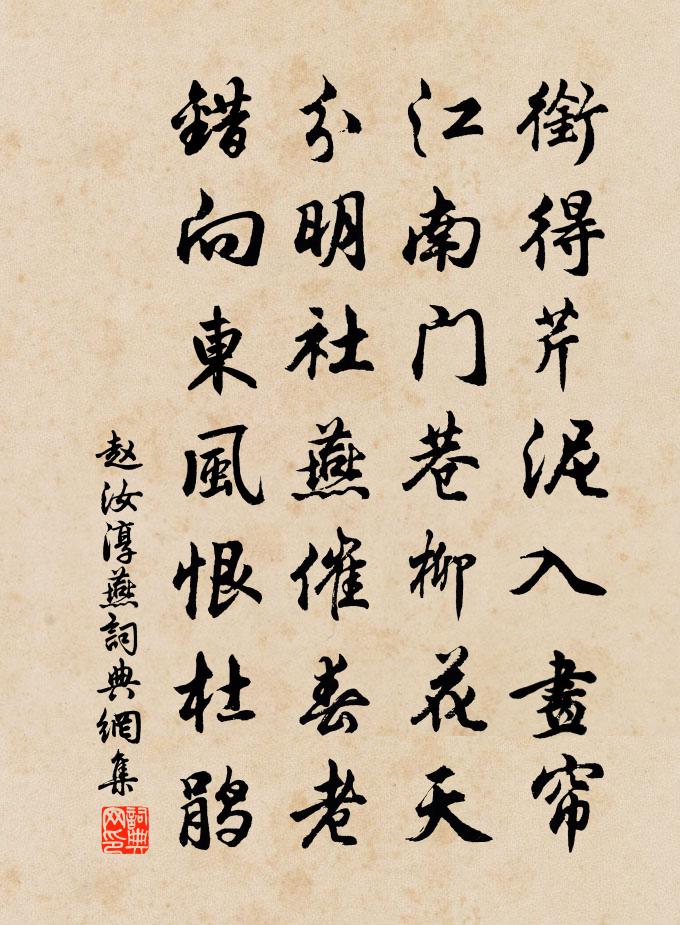 銜得芹泥入畫帘
江南門巷柳花天
分明社燕催春老
錯向東風恨杜鹃
赵汝淳燕詞典網集
詞典网印